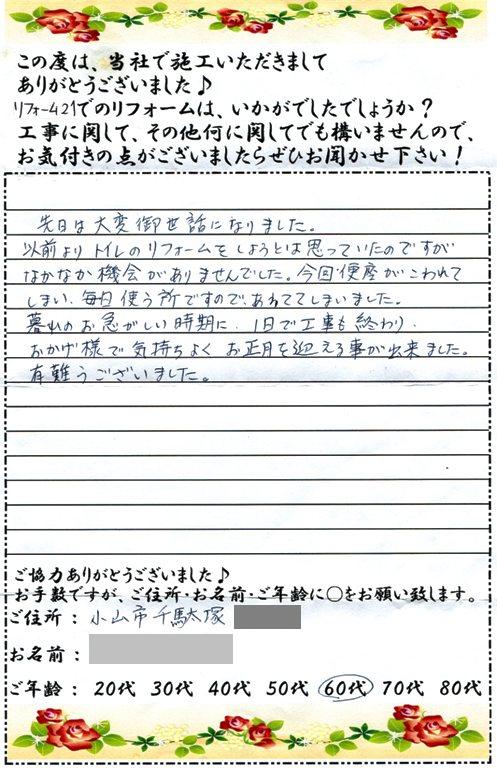 この度は、当社で施工いただきまして
ありがとうございました♪
リフォーム21でのリフォームは、いかがでしたでしょうか？
工事に関して、その他何に関してでも構いませんので、
お気付きの点がございましたらぜひお聞かせ下さい！
先日は大変御世話になりました。
以前よりトイレのリフォームをしようとは思っていたのですが
なかなか機会がありませんでした。今回便座がこわれて
しまい、毎日使う所ですので、あわててしまいました。
暮れのお急がしい時期に、1日で工事も終わり、
おかげ様で気持ちよくお正月を迎える事が出来ました。
有難うございました。
ご協力ありがとうございました♪
お手数ですが、ご住所・お名前・ご年齢に○をお願い致します。
ご住所：小山市千駄塚
お名前：
ご年齢：20代 30代 40代 50代 60代 70代 80代